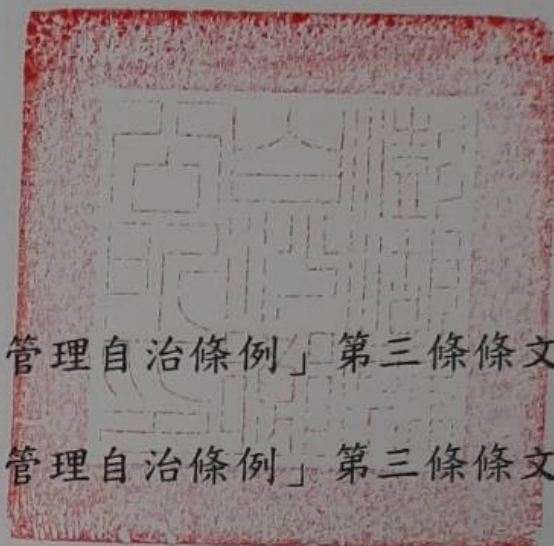 管理自治條例」第三條條文
管理自治條例」第三條條文